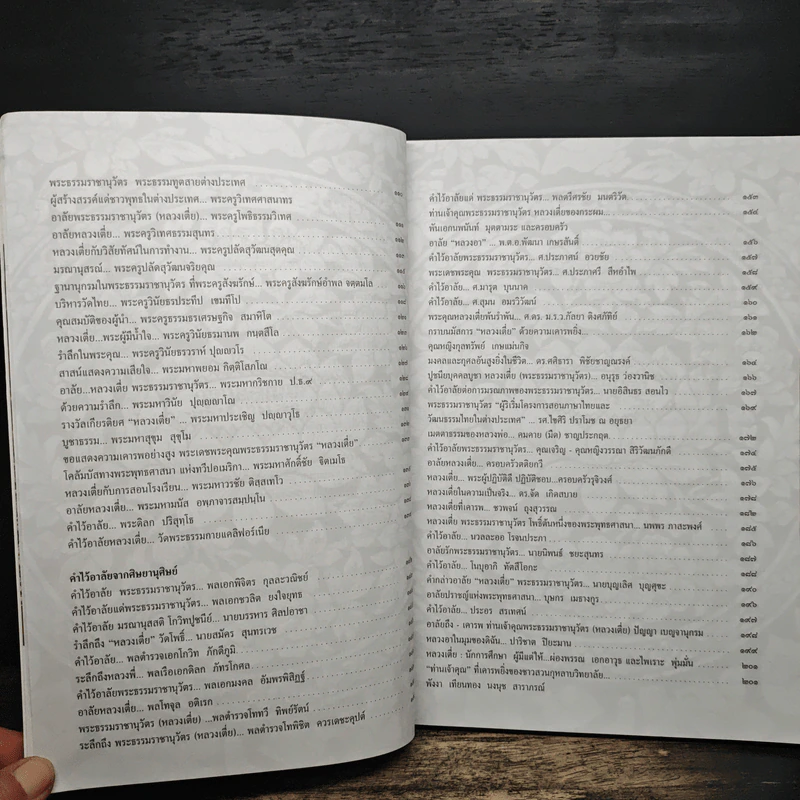 พระธรรมราชานุวัตร พระธรรมทูตสายต่างประเทศ
ผู้สร้างสรรค์แด่ชาวพุทธในต่างประเทศ... พระครูวิเทศศาสนาทร
อาลัยพระธรรมราชานุวัตร (หลวงเตี่ย)... พระครูโพธิธรรมวิเทศ
อาลัยหลวงเตี่ย... พระครูวิเทศธรรมสุนทร
หลวงเตี่ยกับวิสัยทัศน์ในการทำงาน... พระครูปลัดสุวัฒนสุตคุณ
มรณานุสรณ์... พระครูปลัดสุวัฒนจริยคุณ
ฐานานุกรมในพระธรรมราชานุวัตร ที่พระครูสังฆรักษ์... พระครูสังฆรักษ์อำพล จตฺตมโล
บริหารวัดไทย... พระครูวินัยธรประทีป เขมทีโป
คุณสมบัติของผู้นำ... พระครูธรรมธรเศรษฐกิจ สมาหิโต
หลวงเตี่ย...พระผู้มีน้ำใจ... พระครูวินัยธรมานพ กนฺตสีโล
รำลึกในพระคุณ... พระครูวินัยธรวราห์ ปุญฺญวโร
สาสน์แสดงความเสียใจ... พระมหาพยอม กิตติโสภโณ
อาลัย...หลวงเตี่ย พระธรรมราชานุวัตร... พระมหากริชกาย ป.ธ.๙
ด้วยความรำลึก... พระมหาวินัย ปุญฺญญาโณ
รางวัลเกียรติยศ “หลวงเตี่ย” ... พระมหาประเชิญ ปญฺญาวุโธ
บูชาธรรม... พระมหาสุขุม สุขุโม
ขอแสดงความเคารพอย่างสูง พระเดชพระคุณพระธรรมราชานุวัตร “หลวงเตี่ย”
โคลัมบัสทางพระพุทธศาสนา แห่งทวีปอเมริกา... พระมหาศักดิ์ชัย จิตเมโธ
หลวงเตี่ยกับการสอนโรงเรียน... พระมหาวรชัย ติสฺสเทโว
อาลัยหลวงเตี่ย... พระมหามนัส อพฺภาจารสมฺปนฺโน
คำไว้อาลัย... พระดิลก ปริสุทฺโธ
คำไว้อาลัยหลวงเตี่ย... วัดพระธรรมกายแคลิฟอร์เนีย
คำไว้อาลัยจากศิษยานุศิษย์
คำไว้อาลัย พระธรรมราชานุวัตร... พลเอกพิจิตร กุลละวณิชย์
คำไว้อาลัยแด่พระธรรมราชานุวัตร... พลเอกชวลิต ยงใจยุทธ
คำไว้อาลัย มรณานุสสติ โกวิทปูชนีย์... นายบรรหาร ศิลปอาชา
รำลึกถึง “หลวงเตี่ย” วัดโพธิ์... นายสมัคร สุนทรเวช
คำไว้อาลัย... พลตำรวจเอกโกวิท ภักดีภูมิ
ระลึกถึงหลวงพี่... พลเรือเอกดิลก ภัทรโกศล
คำไว้อาลัยพระธรรมราชานุวัตร... พลเอกมงคล อัมพรพิสิฏฐ์
อาลัยหลวงเตี่ย... พลโทจุล อติเรก
พระธรรมราชานุวัตร (หลวงเตี่ย) ...พลตำรวจโททวี ทิพย์รัตน์
ระลึกถึง พระธรรมราชานุวัตร (หลวงเตี่ย)... พลตำรวจโทพิชิต ควรเดชะคุปต์
คำไว้อาลัยแด่ พระธรรมราชานุวัตร... พลตรีศรชัย มนตริวัต ๑๕๓
ท่านเจ้าคุณพระธรรมราชานุวัตร หลวงเตี่ยของกระผม... ๑๕๔
พันเอกนพนันท์ มุตตามระ และครอบครัว
อาลัย “หลวงอา” ... พ.ต.อ.พัฒนา เกษรสันติ์ ๑๕๖
คำไว้อาลัยพระธรรมราชานุวัตร... ศ.ประภาศน์ อวยชัย ๑๕๗
พระเดชพระคุณ พระธรรมราชานุวัตร... ศ.ประภาศรี สีหอำไพ ๑๕๘
คำไว้อาลัย... ศ.มารุต บุนนาค ๑๕๙
คำไว้อาลัย... ศ.สุมน อมรวิวัฒน์ ๑๖๐
พระคุณหลวงเตี่ยพันรำพัน... ศ.ดร. ม.ร.ว.กัลยา ติงศภัทิย์ ๑๖๑
กราบนมัสการ “หลวงเตี่ย” ด้วยความเคารพยิ่ง... ๑๖๒
คุณหญิงกุลทรัพย์ เกษแม่นกิจ
มงคลและกุศลอันสูงยิ่งในชีวิต... ดร.ศศิธารา พิชัยชาญณรงค์ ๑๖๔
ปูชนียบุคคลบูชา หลวงเตี่ย (พระธรรมราชานุวัตร)... อนุรุธ ว่องวานิช ๑๖๖
คำไว้อาลัยต่อการมรณภาพของพระธรรมราชานุวัตร... นายอิสินธร สอนไว ๑๖๗
พระธรรมราชานุวัตร “ผู้ริเริ่มโครงการสอนภาษาไทยและ ๑๖๙
วัฒนธรรมไทยในต่างประเทศ” ... รศ.ไขศิริ ปราโมช ณ อยุธยา
เมตตาธรรมของหลวงพ่อ... คมคาย (มืด) ชาญประกฤต ๑๗๒
คำไว้อาลัยพระธรรมราชานุวัตร... คุณเจริญ - คุณหญิงวรรณา สิริวัฒนภักดี ๑๗๔
อาลัยหลวงเตี่ย... ครอบครัวตติยกวี ๑๗๕
หลวงเตี่ย... พระผู้ปฏิบัติดี ปฏิบัติชอบ...ครอบครัวรุจิวงศ์ ๑๗๖
หลวงเตี่ยในความเป็นจริง... ดร.จัด เกิดสบาย ๑๗๘
หลวงเตี่ยที่เคารพ... ชวพจน์ ถุงสุวรรณ ๑๘๒
หลวงเตี่ย พระธรรมราชานุวัตร โพธิ์ต้นหนึ่งของพระพุทธศาสนา... นพพร ภาสะพงศ์ ๑๘๕
คำไว้อาลัย... นวลละออ โรจนประภา ๑๘๖
อาลัยรักพระธรรมราชานุวัตร... นายนิพนธ์ ชยะสุนทร ๑๘๗
คำไว้อาลัย... ไนบุอากิ ทัตสึโอกะ ๑๘๘
คำกล่าวอาลัย “หลวงเตี่ย” พระธรรมราชานุวัตร... นายบุญเลิศ บุญศุขะ ๑๙๐
อาลัยปราชญ์แห่งพระพุทธศาสนา... บุษกร เมธางกูร ๑๙๖
คำไว้อาลัย... ประอร สรเทศน์ ๑๙๗
อาลัยถึง - เคารพ ท่านเจ้าคุณพระธรรมราชานุวัตร (หลวงเตี่ย) ปัญญา เบญจานุกรม ๑๙๘
หลวงอาในมุมของดิฉัน... ปาริชาต ปิยะมาน ๑๙๙
หลวงเตี่ย : นักการศึกษา ผู้มีแต่ให้...ผ่องพรรณ เอกอาวุธ และไพเราะ พุ่มมั่น ๒๐๑
“ท่านเจ้าคุณ” ที่เคารพยิ่งของชาวสวนกุหลาบวิทยาลัย... ๒๐๑
พังงา เทียนทอง นงนุช สาราภรณ์